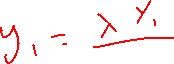 y₁ = λ Y₁